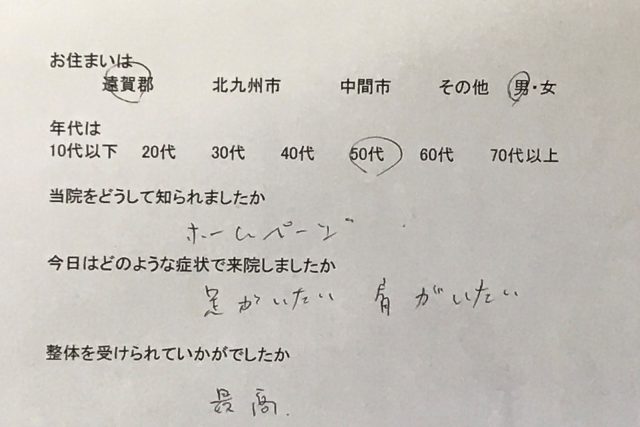 お住まいは
遠賀郡 北九州市 中間市 その他 男・女
年代は
10代以下 20代 30代 40代 50代 60代 70代以上
当院をどうして知られましたか
ホームページ
今日はどのような症状で来院しましたか
足がいたい 肩がいたい
整体を受けられていかがでしたか
最高.